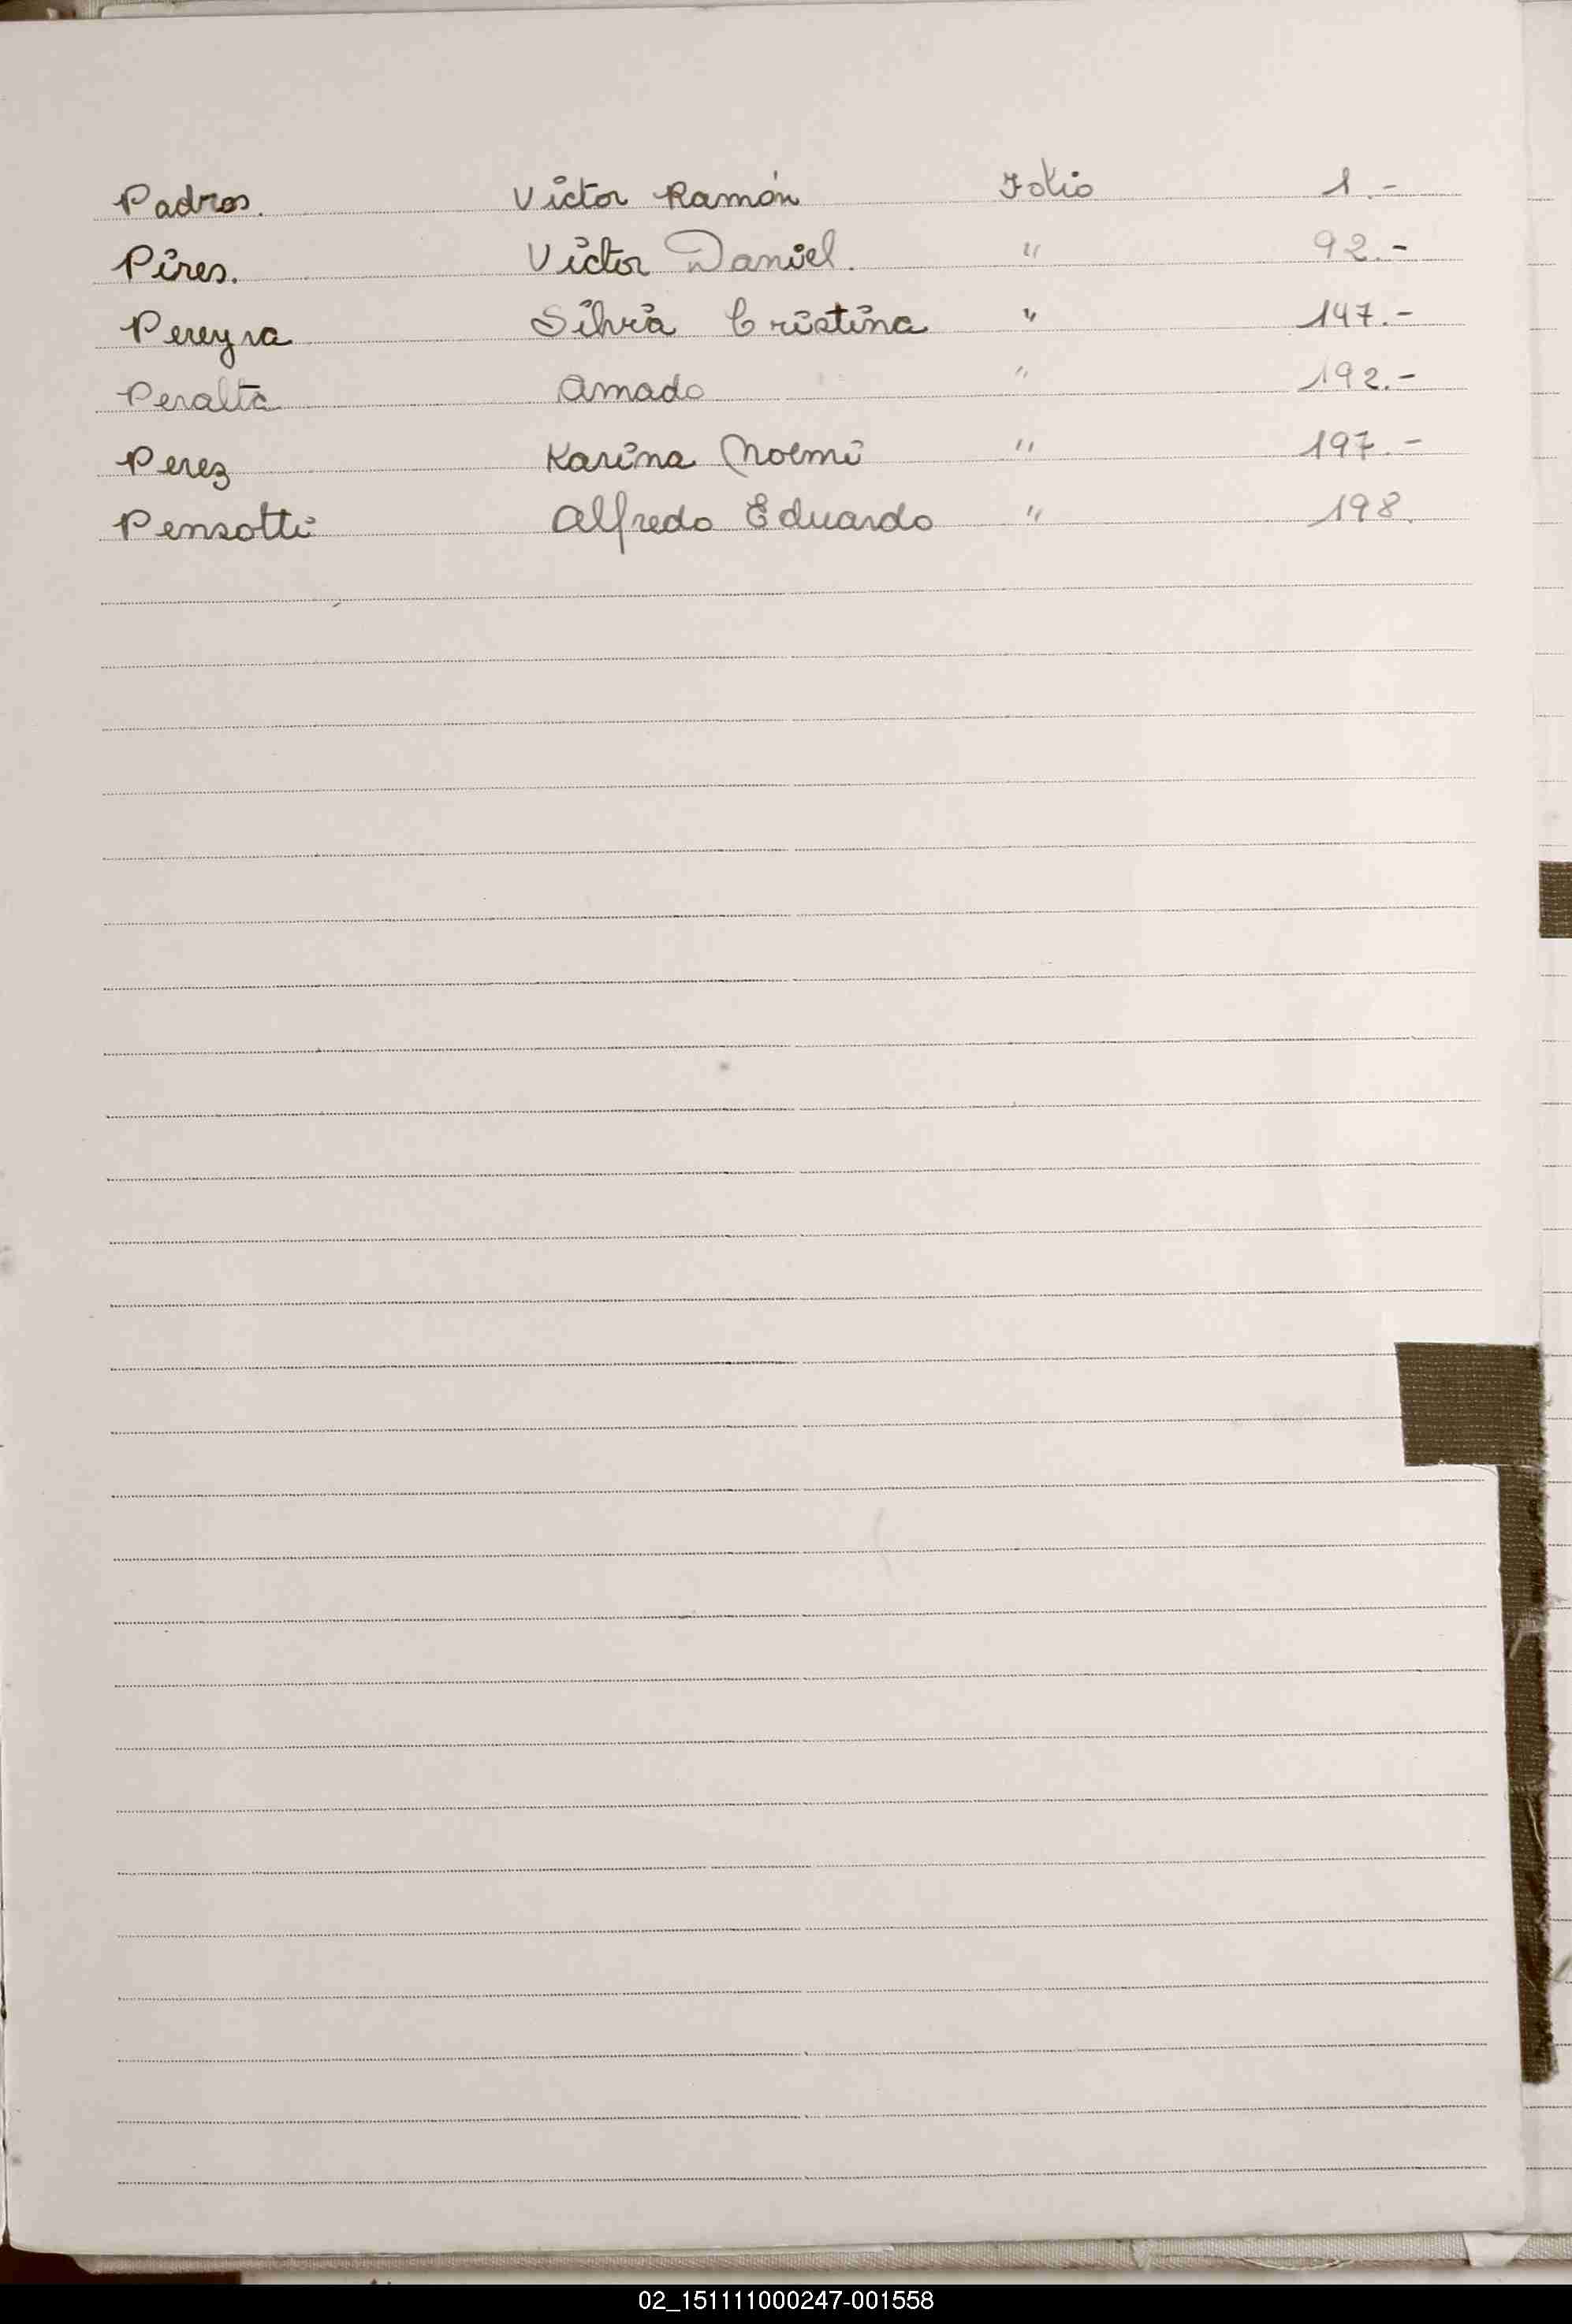 Padros. Victor Ramón Folio 1.-
Pires. Victor Daniel. " 92.-
Pereyra Silvia Cristina " 147.-
Peralta Amado " 192.-
Perez Karina Noemi " 197.-
Pensotti Alfredo Eduardo " 198.
02_151111000247-001558